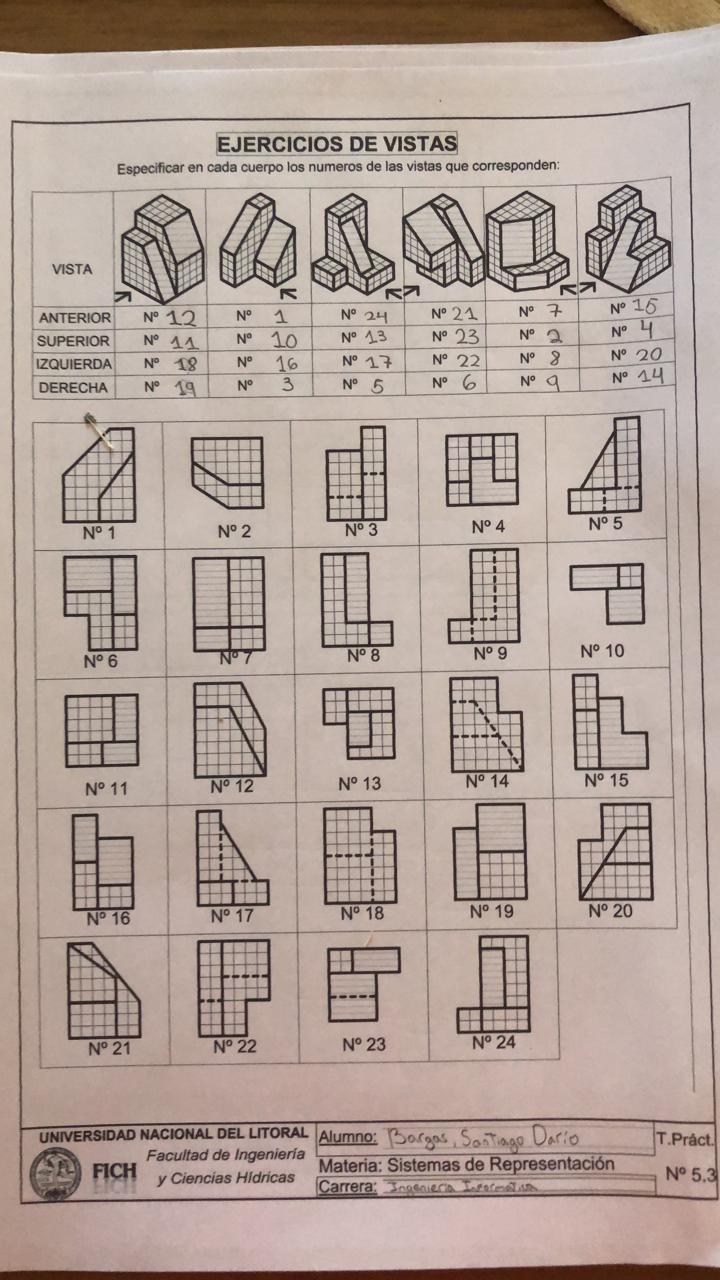 EJERCICIOS DE VISTAS
Especificar en cada cuerpo los numeros de las vistas que corresponden:
VISTA
ANTERIOR Nº 12 Nº 1 Nº 24 Nº 21 Nº 7 Nº 15
SUPERIOR Nº 11 Nº 10 Nº 13 Nº 23 Nº 2 Nº 4
IZQUIERDA Nº 18 Nº 16 Nº 17 Nº 22 Nº 8 Nº 20
DERECHA Nº 19 Nº 3 Nº 5 Nº 6 Nº 9 Nº 14
Nº 1 Nº 2 Nº 3 Nº 4 Nº 5
Nº 6 Nº 7 Nº 8 Nº 9 Nº 10
Nº 11 Nº 12 Nº 13 Nº 14 Nº 15
Nº 16 Nº 17 Nº 18 Nº 19 Nº 20
Nº 21 Nº 22 Nº 23 Nº 24
UNIVERSIDAD NACIONAL DEL LITORAL
FICH
Facultad de Ingeniería
y Ciencias Hídricas
Alumno: Bargas, Santiago Darío
Materia: Sistemas de Representación
Carrera: Ingeniería Informatica
T.Práct.
Nº 5.3